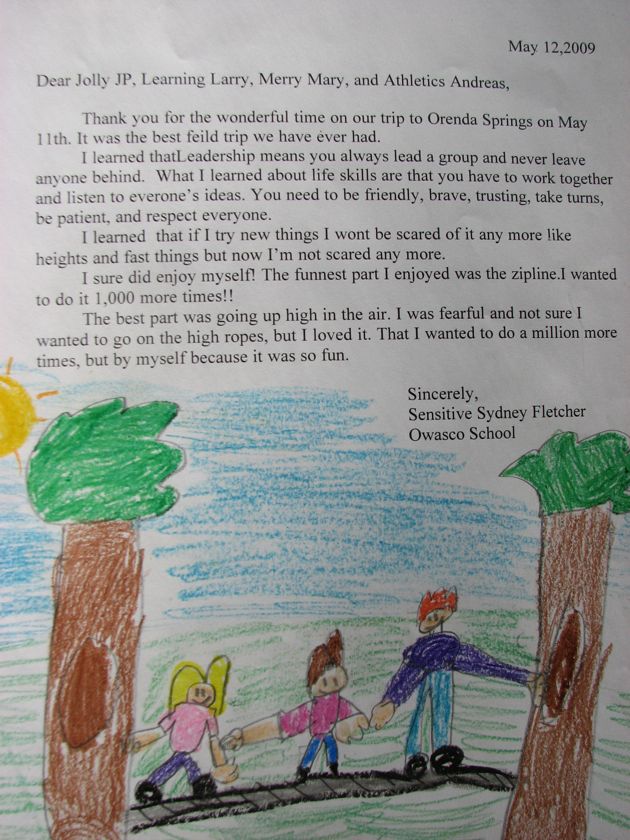 May 12,2009
Dear Jolly JP, Learning Larry, Merry Mary, and Athletics Andreas,
Thank you for the wonderful time on our trip to Orenda Springs on May
11th. It was the best feild trip we have ever had.
I learned thatLeadership means you always lead a group and never leave
anyone behind.  What I learned about life skills are that you have to work together
and listen to everone's ideas. You need to be friendly, brave, trusting, take turns,
be patient, and respect everyone.
I learned  that if I try new things I wont be scared of it any more like
heights and fast things but now I'm not scared any more.
I sure did enjoy myself! The funnest part I enjoyed was the zipline.I wanted
to do it 1,000 more times!!
The best part was going up high in the air. I was fearful and not sure I
wanted to go on the high ropes, but I loved it. That I wanted to do a million more
times, but by myself because it was so fun.
Sincerely,
Sensitive Sydney Fletcher
Owasco School